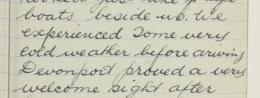 boats beside us. We
experienced some very
cold weather before ariving
Devonport proved a very
welcome sight after